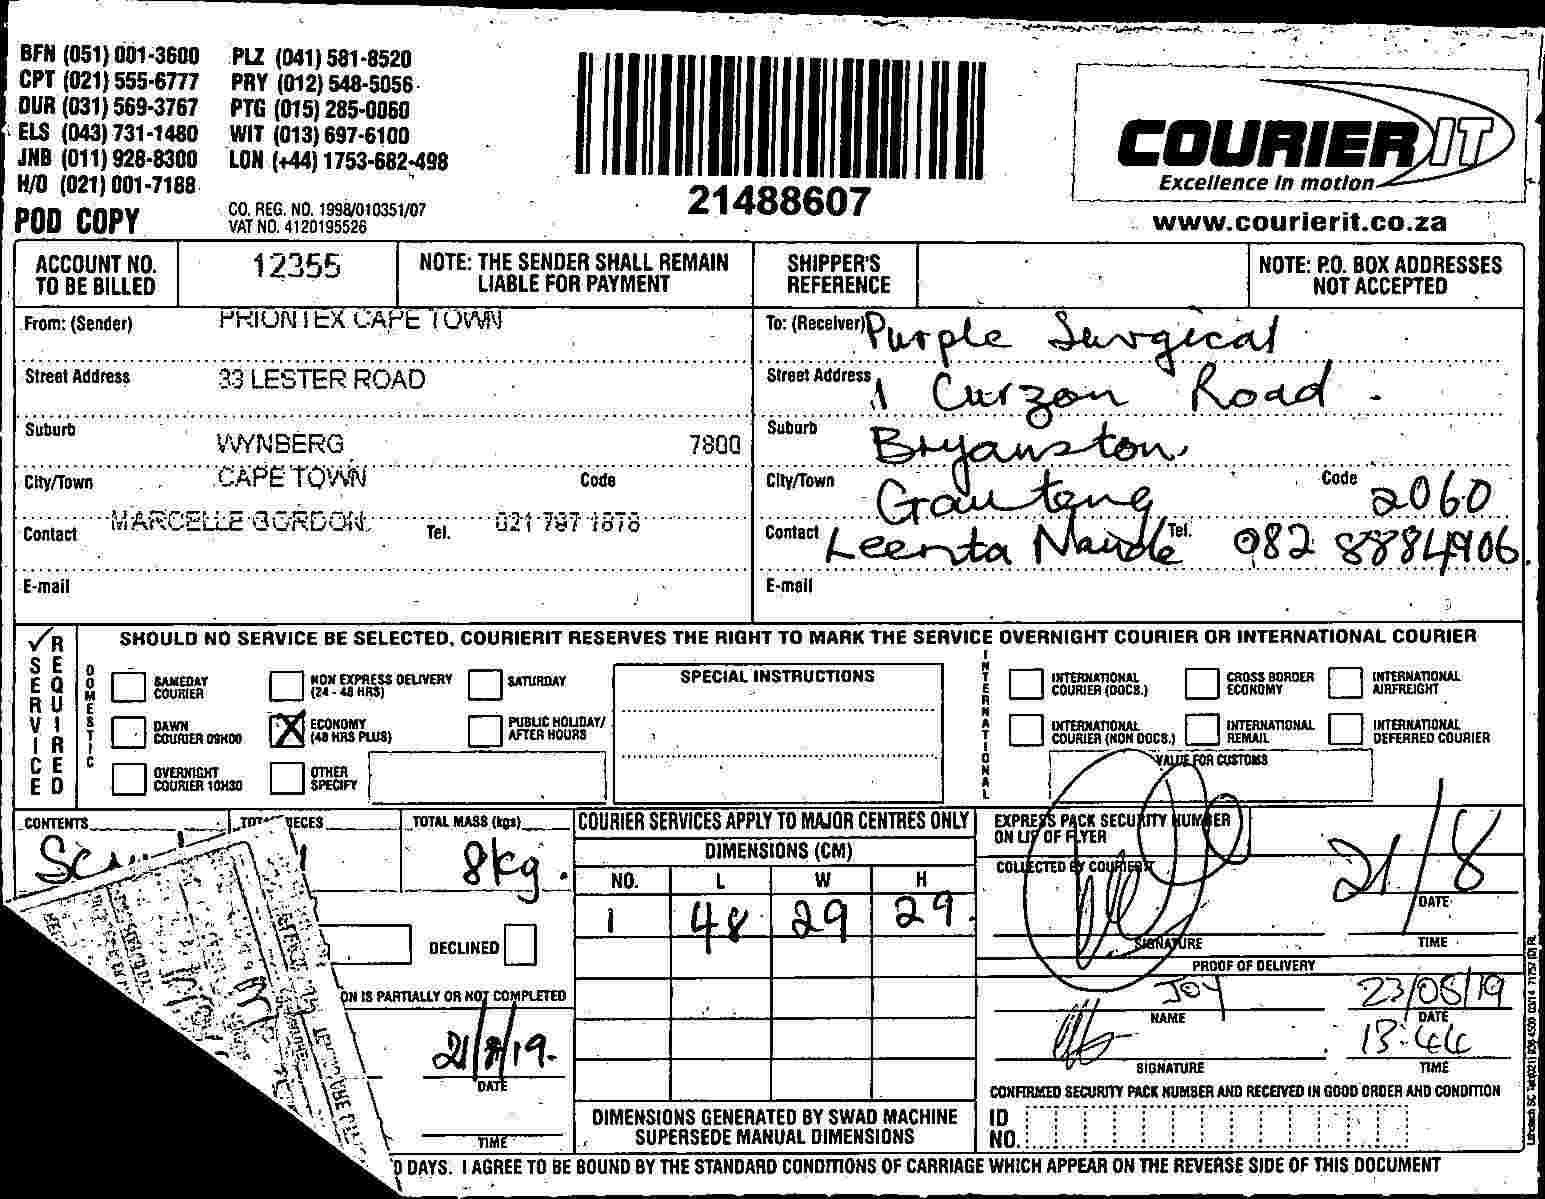 BFN (051) 001-3600 PLZ (041) 581-8520
CPT (021) 555-6777 PRY (012) 548-5056
DUR (031) 569-3767 PTG (015) 285-0060
ELS (043) 731-1480 WIT (013) 697-6100
JNB (011) 928-8300 LON (+44) 1753-682-498
H/O (021) 001-7188
POD COPY
CO. REG. NO. 1998/010351/07
VAT NO. 4120195526
21488607
COURIER IT
Excellence in motion
www.courierit.co.za
ACCOUNT NO. TO BE BILLED 12355
NOTE: THE SENDER SHALL REMAIN LIABLE FOR PAYMENT
SHIPPER'S REFERENCE
NOTE: P.O. BOX ADDRESSES NOT ACCEPTED
From: (Sender) PRIONTEX CAPE TOWN
Street Address 33 LESTER ROAD
Suburb WYNBERG 7800
City/Town CAPE TOWN Code
Contact MARCELLE GORDON Tel. 021 797 1878
E-mail
To: (Receiver) Purple Surgical
Street Address 1 Curzon Road
Suburb Bryanston
City/Town Grauteng Code 2060
Contact Leenta Naude Tel. 082 8884906
E-mail
SERVICE REQUIRED
SHOULD NO SERVICE BE SELECTED, COURIERIT RESERVES THE RIGHT TO MARK THE SERVICE OVERNIGHT COURIER OR INTERNATIONAL COURIER
DOMESTIC
SAMEDAY COURIER
NON EXPRESS DELIVERY (24 - 48 HRS)
SATURDAY
DAWN COURIER 09H00
X ECONOMY (48 HRS PLUS)
PUBLIC HOLIDAY/ AFTER HOURS
OVERNIGHT COURIER 10H30
OTHER SPECIFY
SPECIAL INSTRUCTIONS
INTERNATIONAL
INTERNATIONAL COURIER (DOCS.)
CROSS BORDER ECONOMY
INTERNATIONAL AIRFREIGHT
INTERNATIONAL COURIER (NON DOCS.)
INTERNATIONAL REMAIL
INTERNATIONAL DEFERRED COURIER
VALUE FOR CUSTOMS
CONTENTS
TOTAL MASS (kgs)
8kg.
DECLINED
ON IS PARTIALLY OR NOT COMPLETED
21/8/19.
DATE
TIME
COURIER SERVICES APPLY TO MAJOR CENTRES ONLY
DIMENSIONS (CM)
NO. L W H
1 48 29 29
DIMENSIONS GENERATED BY SWAD MACHINE
SUPERSEDE MANUAL DIMENSIONS
EXPRESS PACK SECURITY NUMBER
ON LIP OF FLYER
COLLECTED BY COURIERIT
21/8
DATE
SIGNATURE TIME
PROOF OF DELIVERY
Joy 23/08/19
NAME DATE
13:44
SIGNATURE TIME
CONFIRMED SECURITY PACK NUMBER AND RECEIVED IN GOOD ORDER AND CONDITION
ID NO.
D DAYS. I AGREE TO BE BOUND BY THE STANDARD CONDITIONS OF CARRIAGE WHICH APPEAR ON THE REVERSE SIDE OF THIS DOCUMENT